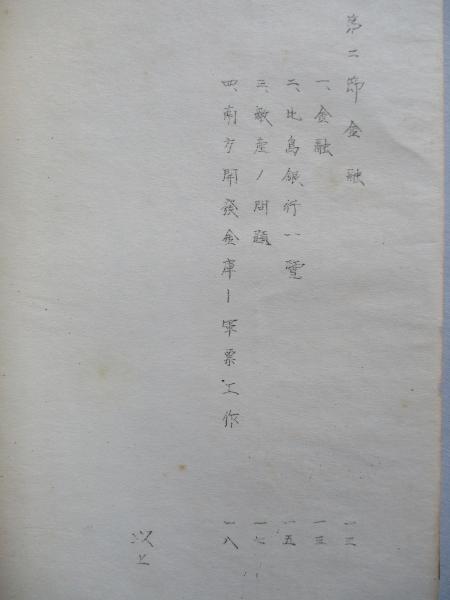 第二節 金融 一三
一、金融 一三
二、比島銀行一覽 一五
三、敵産ノ問題 一七
四、南方開發金庫ー軍票工作 一八
以上